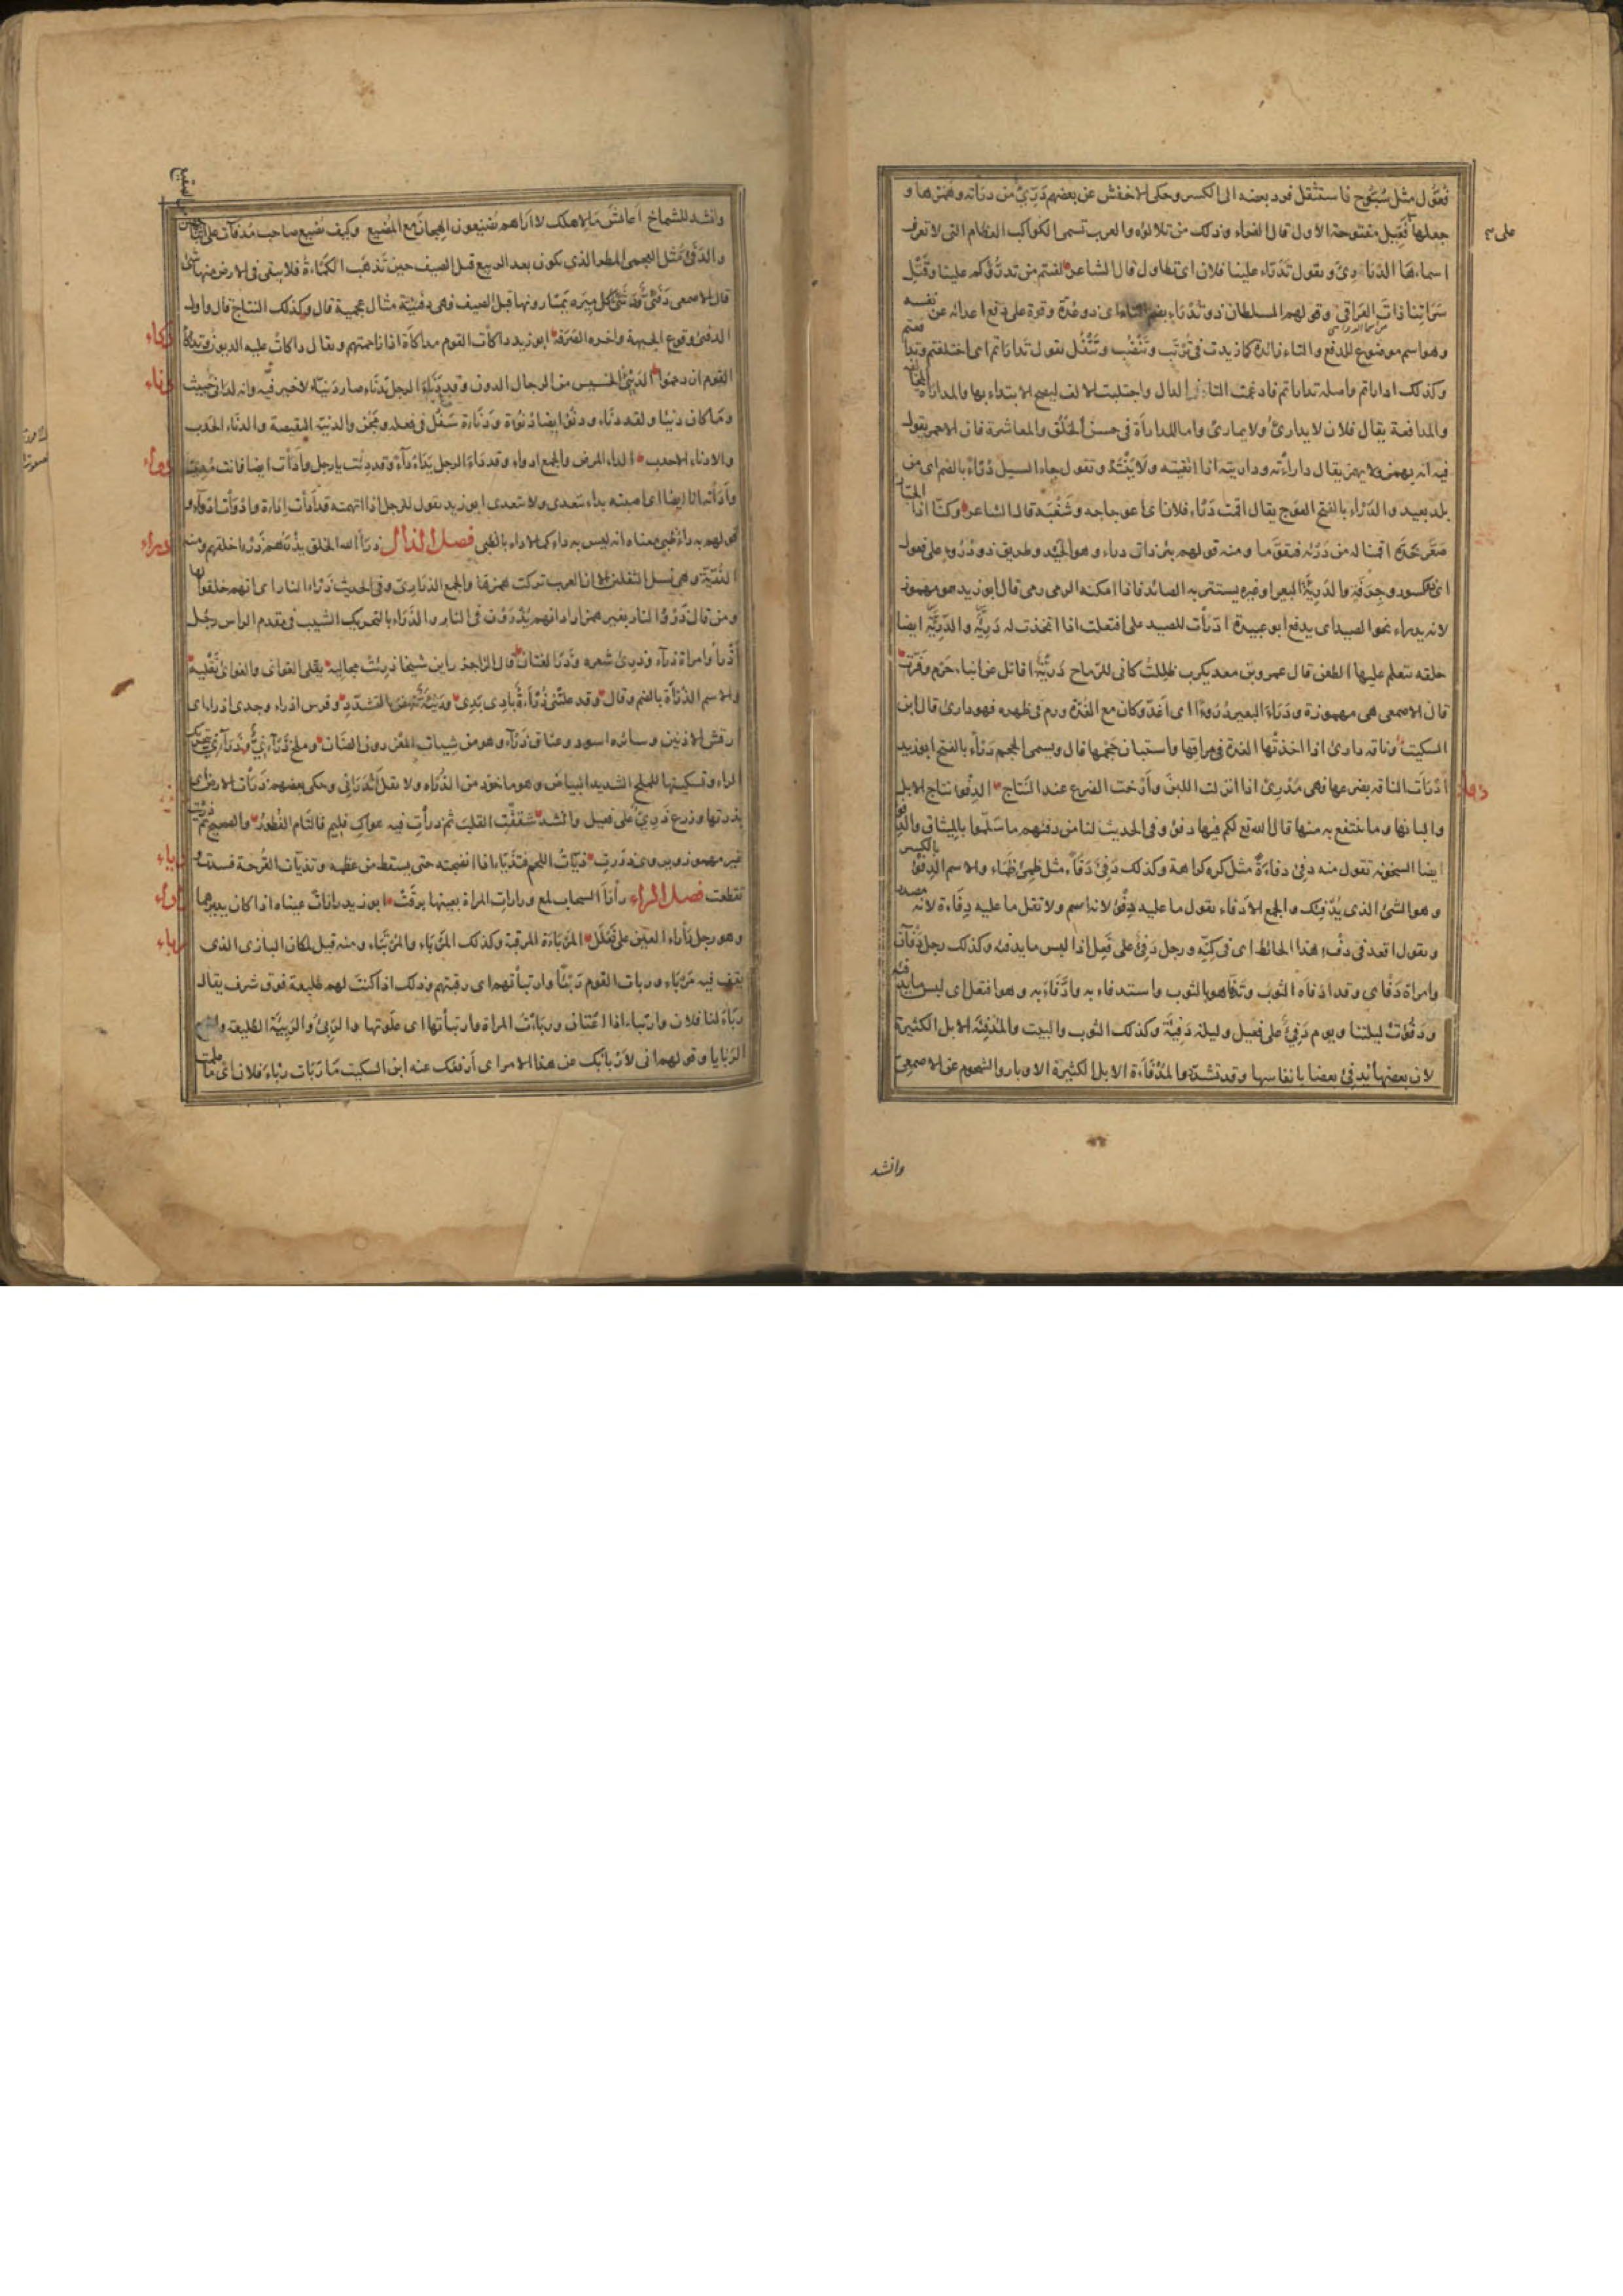 فُعُّول مثل سُبُّوح فاستثقل فرد بعضه الى الكسر وحكى الاخفش عن بعضهم دَرِّيءٌ من درَأته وهمزها و
جعلها على فَعِّيل مفتوحة الاول قال الفراء وذلك من تلألؤه والعرب تسمى الكواكب العظام التى لا تعرف
اسماءها الدَّرارىّ وتقول تَدَرّأ علينا فلان اى تطاول قال الشاعر لقيتم من تدرّئكم علينا وقَتْلِ
سَراتِنا ذاتَ العَراقى وقولهم السلطان ذو تُدْرَأٍ بضم التاء اى ذو عُدّة وقوة على دفع اعدائه عن نفسه
وهو اسم موضوع للدفع والتاء زائدة كما زيدت فى تُرْتَب وتَنْضُب وتَتْفُل تقول تدارأتم اى اختلفتم وتدافعتم
وكذلك ادارأتم واصله تدارأتم فادغمت التاء فى الدال واجتلبت الالف ليصح الابتداء بها والمدارأة المخالفة
والمدافعة يقال فلان لا يدارئ ولا يمارى واما المدارأة فى حسن الخُلُق والمعاشرة فان الاحمر يقول
فيه انه يهمز ولا يهمز يقال دارأته وداريته اذا اتقيته ولاينته وتقول جاء السيل دُرْءًا بالضم اى من
بلد بعيد والدَّرْء بالفتح العوج يقال اقمت دَرْء فلان اى اعوجاجه وشَغْبَه قال الشاعر وكنا اذا الجبار
صَعَّر خَدّه اقمنا له من دَرْئه فتقوّما ومنه قولهم بئر ذات درء وهو الحَيْد وطريق ذو دُرُوءٍ على فعول
اى كسور وجِرَفَةٍ والدَّريئة البعير او غيره يستتر به الصائد فاذا امكنه الرمى رمى قال ابو زيد هو مهموز
لانه يدرأ نحو الصيد اى يدفع ابو عبيدة ادّرأت للصيد على افتعلت اذا اتخذت له دَريئة والدَّريئة ايضا
حلقة يتعلم عليها الطعن قال عمرو بن معديكرب ظللتُ كانى للرماح دَريئة اقاتل عن ابناء جَرْم وفَرّت
قال الاصمعى هى مهموزة ودَرَأ البعير دُرُوءًا اى اغدّ وكان مع الغُدّة ورم فى ظهره فهو دارئ قال ابن
السكيت وناقة دارئ اذا اخذتها الغدة فى مراقها واستبان حَجْمها قال ويسمى الحجم دَرْءًا بالفتح ابو زيد
ادْرَأت الناقة بضرعها فهى مُدْرِئ اذا انزلت اللبن وأَرْخت الضرع عند النتاج الدِّفْء نتاج الابل
والبانها وما ينتفع به منها قال الله تع لكم فيها دفء وفى الحديث لنا من دفئهم ما سلّموا بالميثاق والدفء
ايضا السخونة تقول منه دفِئ دفاءةً مثل كره كراهة وكذلك دَفِئ دَفَأً مثل ظمِئ ظَمَأً والاسم الدِّفْء بالكسر
وهو الشئ الذى يُدْفِئك والجمع الادفاء تقول ما عليه دِفْء لانه اسم ولا تقل ما عليه دِفاءة لانه مصدر
وتقول اقعد فى دفْء هذا الحائط اى فى كِنّه ورجل دَفِئ على فَعِل اذا لبس ما يدفئه وكذلك رجل دَفْآن
وامراة دَفْأى وقد ادْفأه الثوب وتدفأ هو بالثوب واستدفأ به وادَّفَأ به وهو افتعل اى لبس ما يدفئه
ودَفُؤَتْ ليلتنا ويوم دَفِيءٌ على فعيل وليلة دَفيئة وكذلك الثوب والبيت والمُدْفِئة الابل الكثيرة
لان بعضها يدفئ بعضا بانفاسها وقد تشدد والمُدْفَأة الابل الكثيرة الاوبار والشحوم عن الاصمعى
وانشد
وانشد للشماخ أعائشَ ما لاهلك لا اراهم يُضيعون الهِجانَ مع المُضيع وكيف يُضيع صاحب مُدْفَآت على
والدَّفَئىّ مثل العجمى المطر الذى يكون بعد الربيع قبل الصيف حين تذهب الكَمْأة فلا يبقى فى الارض منها شئ
قال الاصمعى دَفَئىّ ودَثَئىّ وكل ميرة يمتارونها قبل الصيف فهى دفئية مثال عجمية قال وكذلك النتاج قال واول
الدفئى وقوع الجبهة واخره الصَّرْفة ابو زيد داكأت القوم مداكأة اذا زاحمتهم ويقال داكأت عليه الديون وتداكأ
القوم ازدحموا الدَّنِئ الخسيس من الرجال الدون وقد دنَأ الرجل يَدْنَأ صار دنيئا لا خير فيه وانه لدانئ خبيث
وما كان دنيئا ولقد دنَأ ودنُؤ ايضا دُنُوءة ودَناءة سَفُل فى فعله ومَجُن والدنيئة النقيصة والدنَأ الحدب
والادنأ الاحدب الداء المرض والجمع ادواء وقد داء الرجل يَدَاء داءً وقد دِئت يا رجل وأدأت ايضا فانت مُدِيء
وأدَأته انا ايضا اى اصبته بداء يتعدى ولا يتعدى ابو زيد تقول للرجل اذا اتهمته قد أدَأت إداءة وأدْوَأت ادواءً و
قولهم به داء ظبى معناه انه ليس به داء كما لا داء بالظبى فصل الذال ذرأ الله الخلق يذرَؤهم ذَرْءًا خلقهم ومنه
الذُّرّيّة وهى نسل الثقلين الا ان العرب تركت همزها والجمع الذرارىّ وفى الحديث ذَرْء النار اى انهم خلقوا لها
ومن قال ذَرْوُ النار بغير همز اراد انهم يُذْرَوْن فى النار والذَّرَأ بالتحريك الشيب فى مقدم الراس رجل
أذْرَأ وامراة ذرْآء وذرِئ شعره وذرَأ لغتان قال الراجز راين شيخا ذرِئت مجاليه يقلى الغوانى والغوانى تقليه
والاسم الذُّرْأة بالضم وقال وقد علتنى ذُرْأة بادى بَدى ورَثْيَةٌ تنهض بالتشدّد وفرس اذرأ وجدى اذرأ اى
ارقش الاذنين وسائره اسود وعناق ذَرْآء وهو من شيات المعز دون الضان وملح ذَرْآنىّ وذَرَآنىّ بتحريك
الراء وتسكينها للملح الشديد البياض وهو ماخوذ من الذُّرْأة ولا تقل أنْذَرانى وحكى بعضهم ذَرَأت الارض اى
بذرتها وزرع ذَرِيءٌ على فعيل وانشد شققتِ القلبَ ثم ذرأتِ فيه هواكِ فليم فالتام الفُطور والصحيح ثم ذريت
غير مهموز ويروى ذَرَرْت ذيّأت اللحم فتذيّأ اذا انضجته حتى يسقط عن عظمه وتذيّأت القُرحة فسدت و
تقطعت فصل الراء رأرأ السحاب لمع ورأرأت المراة بعينها برقت ابو زيد رأرأت عيناه اذا كان يديرهما
وهو رجل رأراء العين على فَعْلال المَرْبأة المرقبة وكذلك المَرْبأ والمُرْتَبأ ومنه قيل لمكان البازى الذى
يقف فيه مَرْبَأ وربأت القوم رَبْئًا وارتبأتهم اى رقبتهم وذلك اذا كنت لهم طليعة فوق شرف يقال
ربَأ لنا فلان وارتبأ اذا اعتان وربأت المرأة وارتبأتها اى علوتها والرَّبىء والرَّبيئة الطليعة والجمع
الرَّبايا وقولهم انى لأربأ بك عن هذا الامر اى أرفعك عنه ابن السكيت ما ربأت ربْءَ فلان اى ما علمت